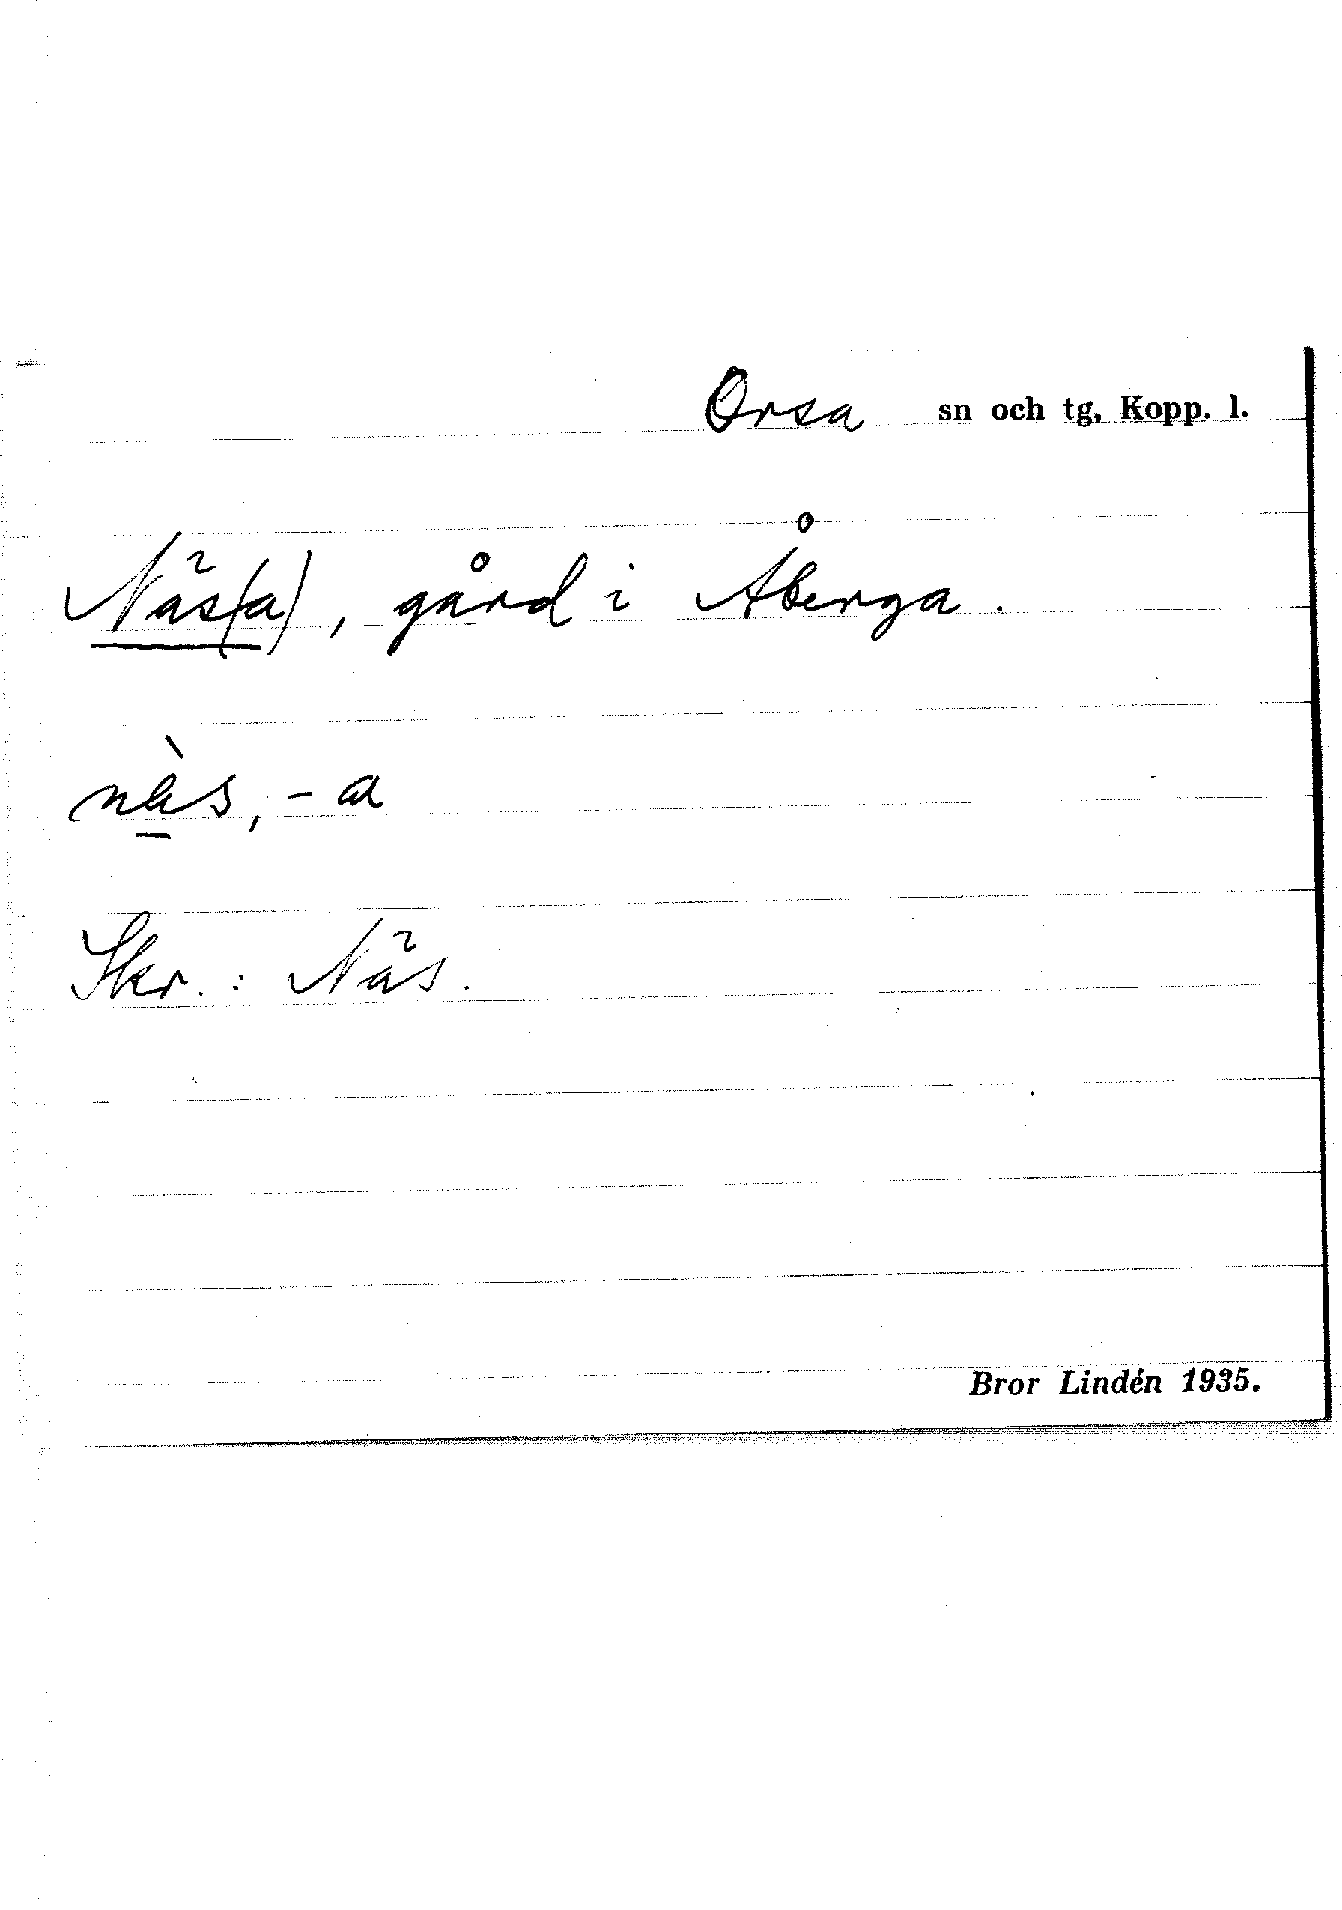 Orsa sn och tg, Kopp. l.
Näs(a), gård i Åberga.
näs, -a
Skr.: Näs.
Bror Lindén 1935.